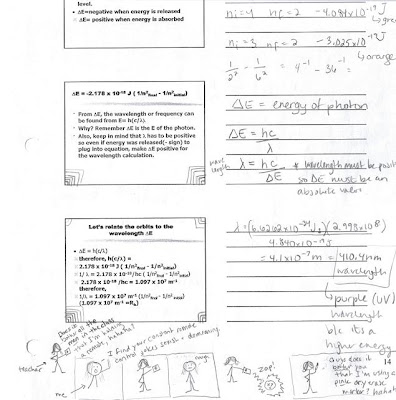 level.
• ΔE=negative when energy is released
ΔE= positive when energy is absorbed
ni=4 nf=2 -4.084x10⁻¹⁹ J
ni=3 nf=2 -3.025x10⁻¹⁹ J
↳ orange
1/2² - 1/6² = 4⁻¹ - 36⁻¹ =
ΔE = -2.178 X 10⁻¹⁸ J ( 1/n²final - 1/n²initial)
• From ΔE, the wavelength or frequency can
be found from E= h(c/λ).
• Why? Remember ΔE is the E of the photon.
• Also, keep in mind that λ has to be positive
so even if energy was released(- sign) to
plug into equation, make ΔE positive for
the wavelength calculation.
ΔE = energy of photon
ΔE = hc
λ
wave
length
λ = hc
ΔE
* wavelength must be
so ΔE must be an
absolute value
Let's relate the orbits to the
wavelength ΔE
• ΔE = h(c/λ)
therefore, h(c/λ) =
2.178 x 10⁻¹⁸ J ( 1/n²final - 1/n²initial)
1/λ = 2.178 x 10⁻¹⁸ /hc ( 1/n²final - 1/n²initial)
2.178 x 10⁻¹⁸ /hc = 1.097 x 10⁷ m⁻¹
therefore,
1/λ = 1.097 x 10⁷ m⁻¹ (1/n²final - 1/n²initial)
(1.097 x 10⁷ m⁻¹ =R
(2.998x10⁸)
4.840x10⁻¹⁹ J
= 4.1x10⁻⁷ m = 410.4 nm
wavelength
↳ purple (UV)
wavelength
b/c its a
higher energy
teacher
me
I find your constant remote
control jokes sexist + demeaning
zap!
14
guys does it
bother you
that I'm using a
pink dry erase
marker? hahah